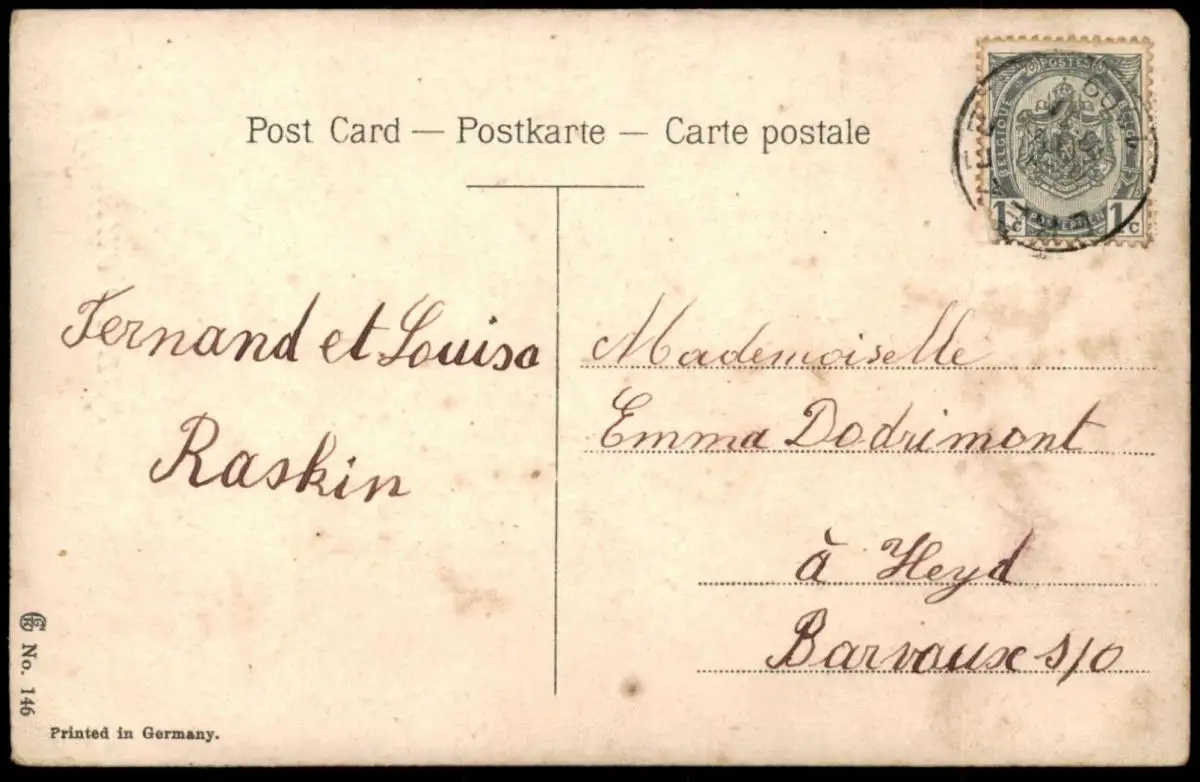 Post Card — Postkarte — Carte postale
POSTES
BELGIQUE BELGIË
1c 1c
Fernand et Louisa
Raskin
Mademoiselle
Emma Dodrimont
à Heyd
Barvaux s/o
No. 146
Printed in Germany.